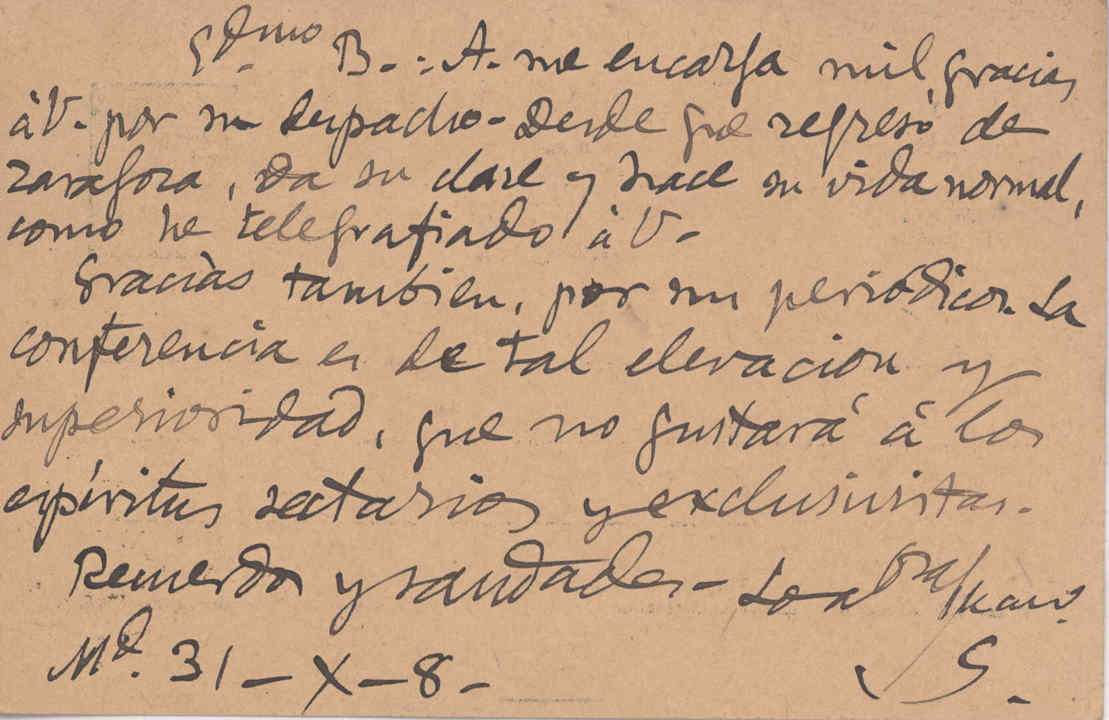 B.: A. me encarga mil gracias
á V. por su despacho - Desde que regresó de
Zaragoza, da su clase y hace su vida normal,
como he telegrafiado á V -
Gracias tambien, por su periódico. La
conferencia es de tal elevacion y
superioridad, que no gustará á los
espíritus sectarios y exclusivistas.
Recuerdos y saudades -
Md. 31 - X - 8 - S.